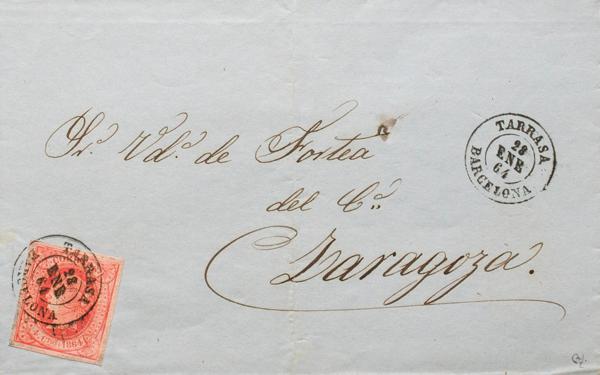 Sr. Vda. de Fortea
del Co.
Zaragoza.
TARRASA
28
ENE
64
BARCELONA
TARRASA
28
ENE
64
BARCELONA
1864